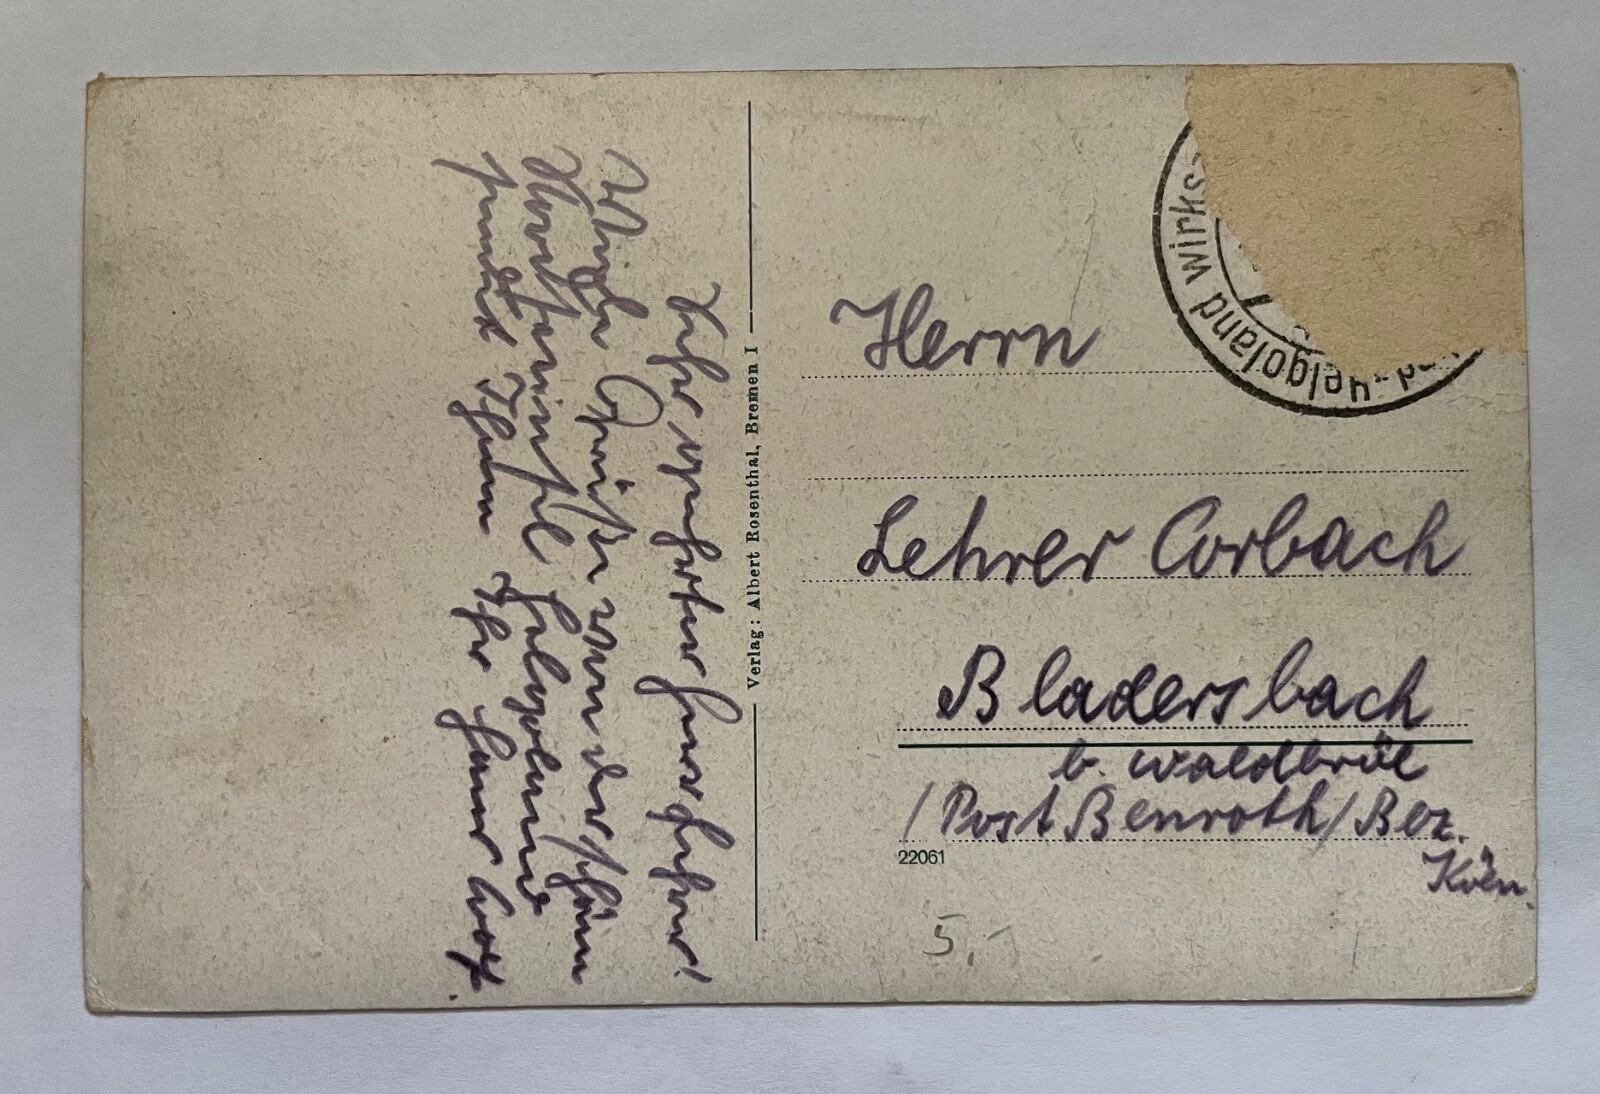 Sehr geehrter Herr Lehrer!
Viele Grüße von der schönen
Nordseeinsel Helgoland
sendet Ihnen Ihr Hans
Verlag: Albert Rosenthal, Bremen I
Helgoland wirks
Herrn
Lehrer Corbach
Bladersbach
b. Waldbröl
/Post Benroth/ Bez.
Köln.
22061
5,-